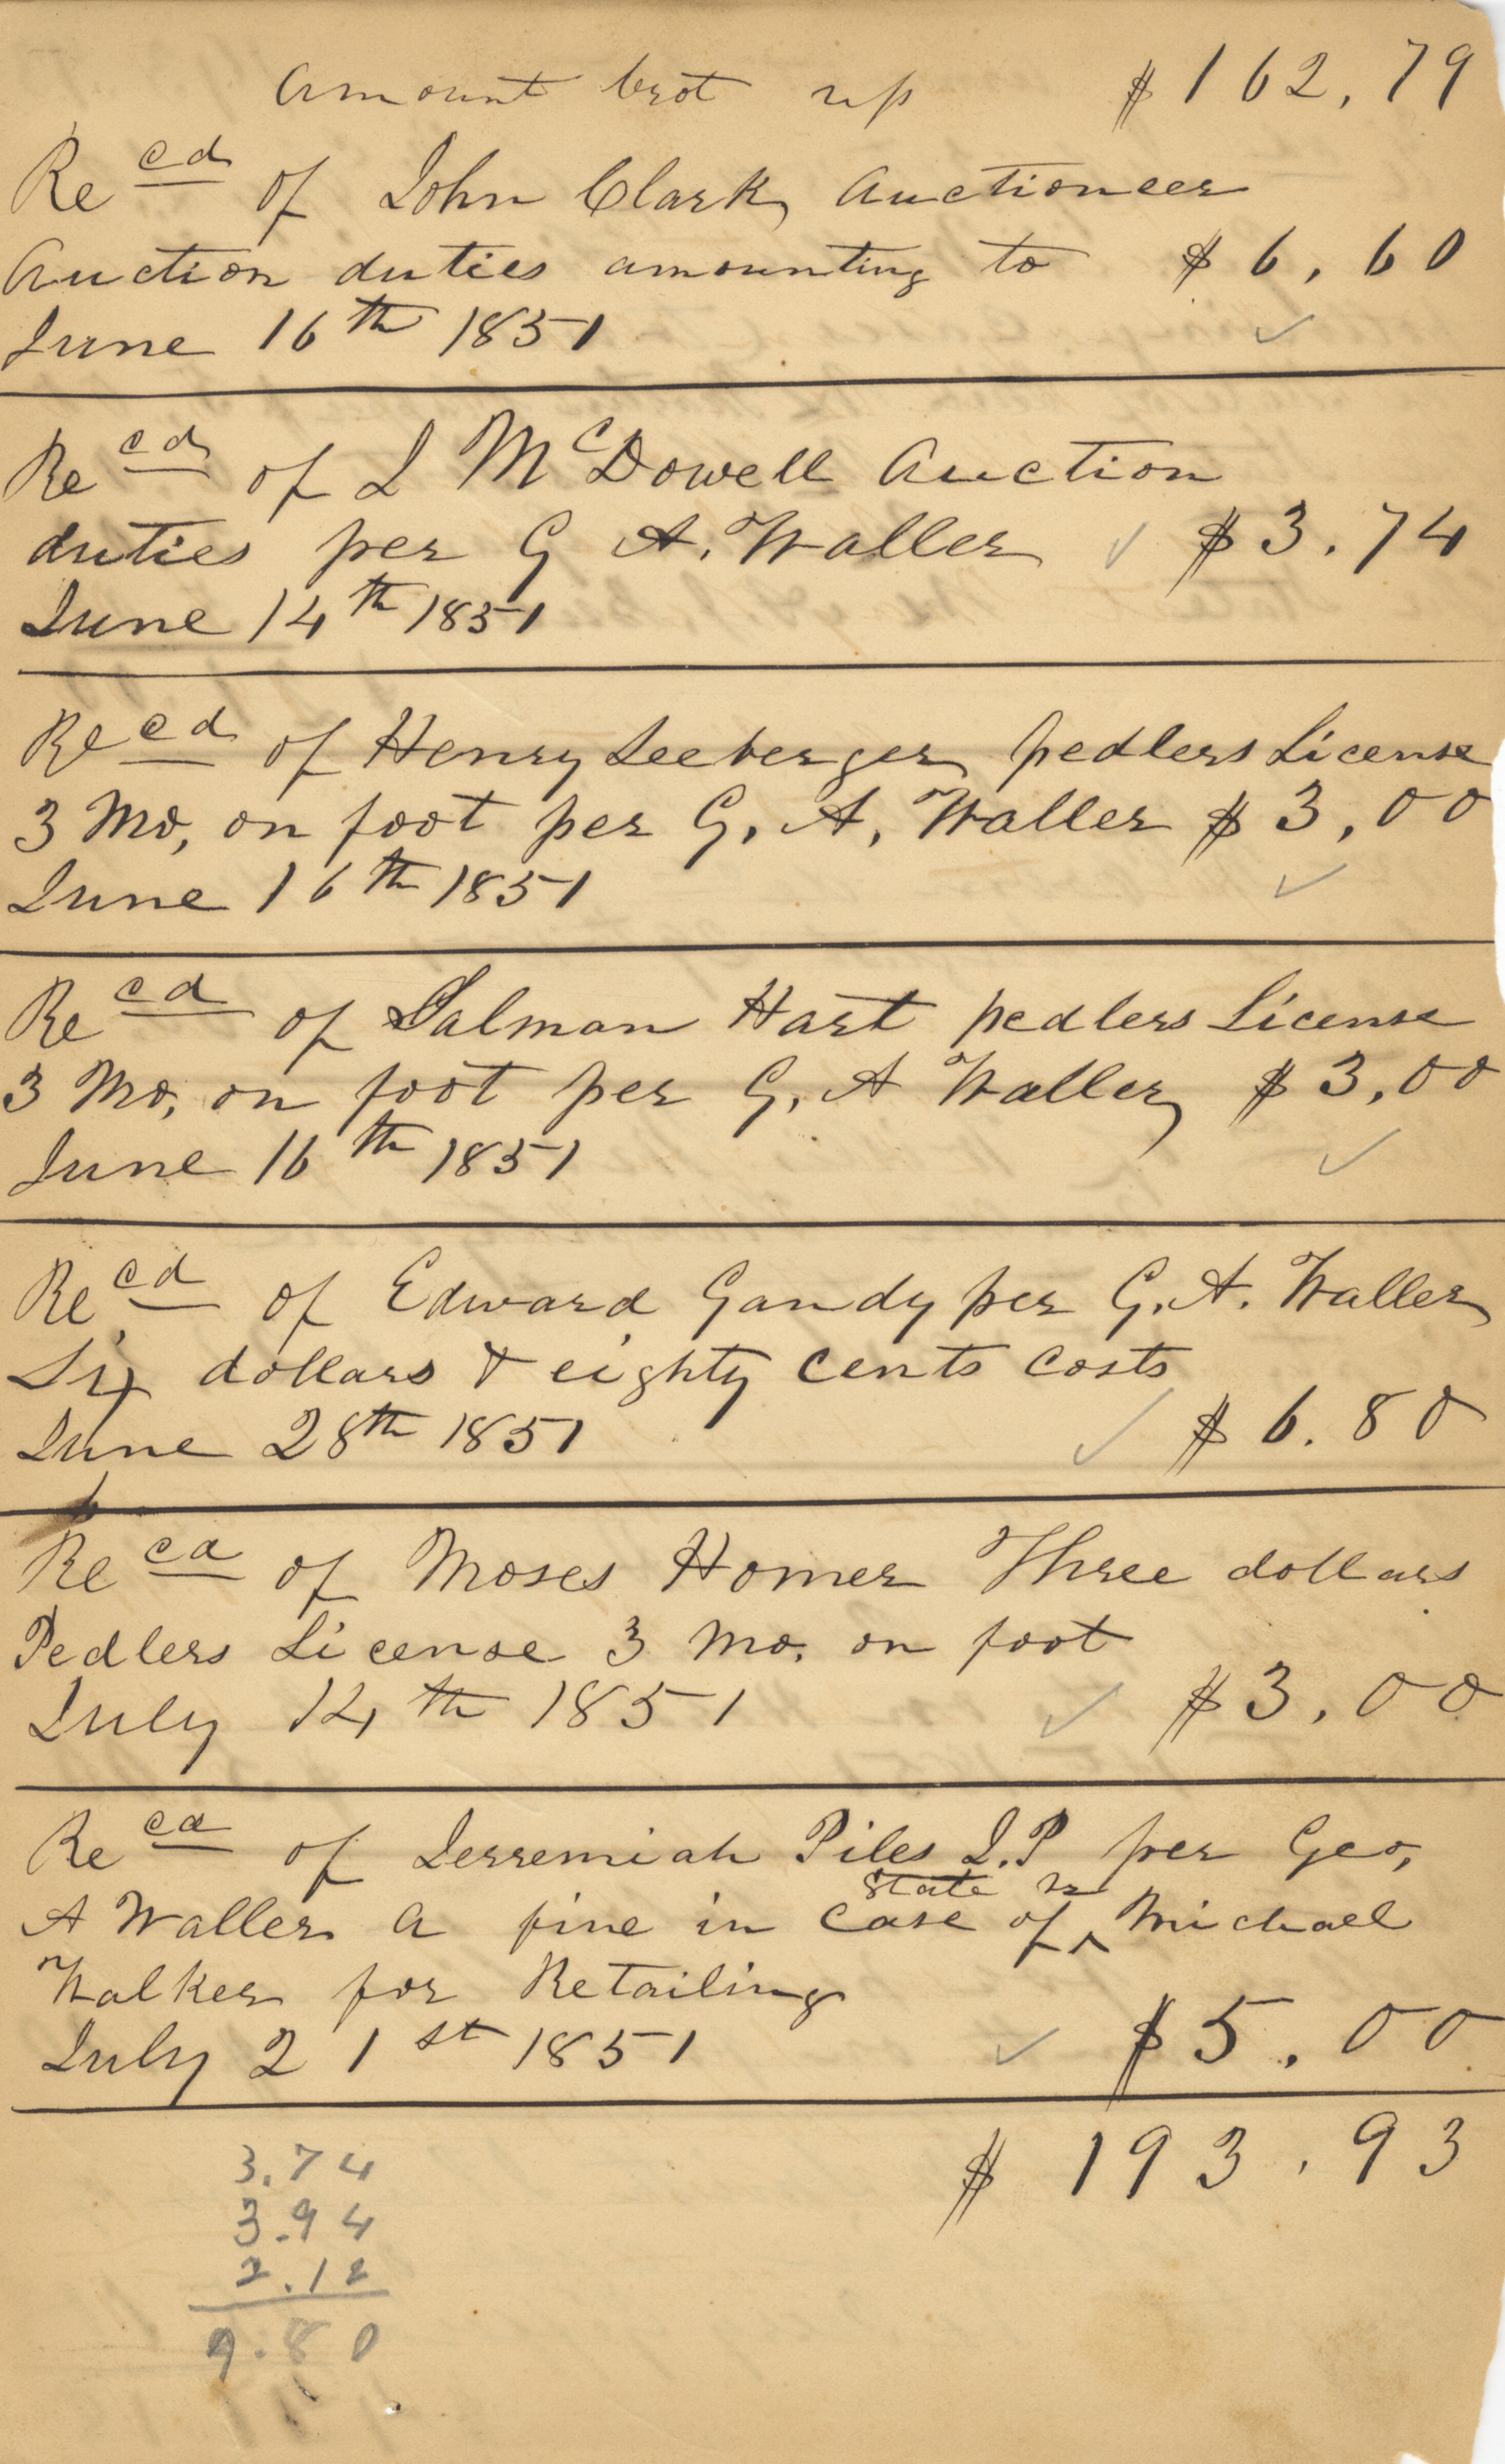 Amount brot up $162,79
Recd of John Clark, Auctioneer
Auction duties amounting to $6,60
June 16th 1851
Recd of J McDowell Auction
duties per G A. Waller $3.74
June 14th 1851
Recd of Henry Seeberger pedlers License
3 Mo, on foot per G, A, Waller $3,00
June 16th 1851
Recd of Salman Hart pedlers License
3 Mo, on foot per G, A Waller, $3,00
June 16th 1851
Recd of Edward Gandy per G. A. Waller
Six dollars & eighty Cents Costs
June 28th 1851 $6.80
Recd of Moses Homer Three dollars
Pedlers License 3 Mo. on foot
July 14th 1851 $3,00
Recd of Jerremiah Piles J.P per Geo,
State vs
A Waller a fine in Case of ^ Michael
Walker for Retailing
July 21st 1851 $5,00
$193,93
3.74
3.94
2.12
9.80